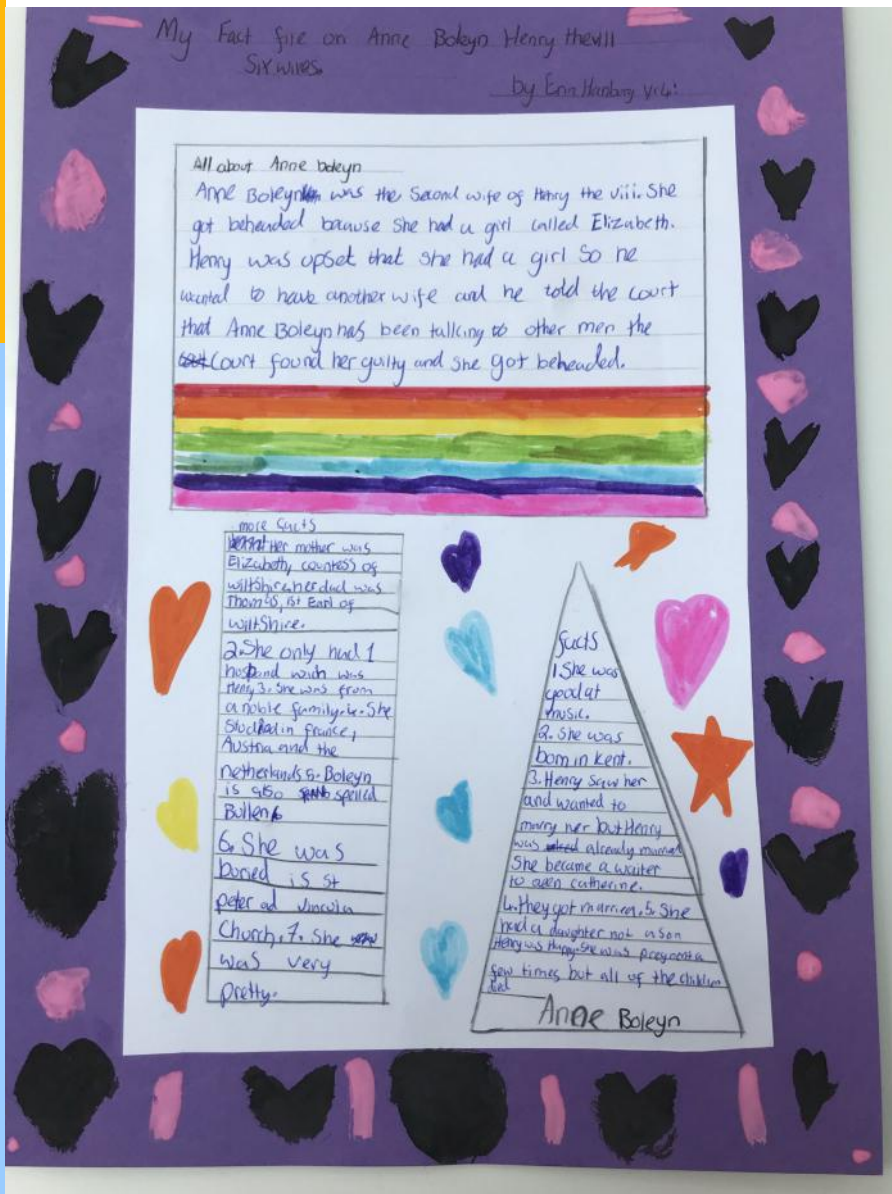 My Fact file on Anne Boleyn Henry theviii
Six wives.
by Erin Hanbury
All about Anne boleyn
Anne Boleyn was the Second wife of Henry the viii. She
got beheaded because She had a girl called Elizabeth.
Henry was upset that she had a girl So he
wanted to have another wife and he told the court
that Anne Boleyn has been talking to other men the
Court found her guilty and she got beheaded.
more facts
Her mother was
Elizabeth, countess of
wiltshire. her dad was
Thomas, 1st Earl of
wiltshire.
2. She only had 1
husband wich was
Henry 3. She was from
a noble family. 4. She
Studied in franse,
Austria and the
netherlands 5. Boleyn
is also spelled
Bullen
6. She was
buried is st
peter ad vincula
Church. 7. She
was very
pretty.
facts
1. She was
good at
music.
2. She was
born in Kent.
3. Henry Saw her
and wanted to
marry her but Henry
was already married
She became a waiter
to catherine.
4. they got married. 5. She
had a daughter not a son
Henry was Happy. She was pregnent a
few times but all of the children
died
Anne Boleyn